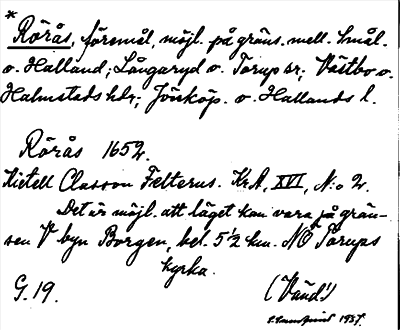 * Rörås, föremål, möjl. på gräns. mell. Smål.
o. Halland; Långaryd o. Torup sr; Västbo o.
Halmstads hdr; Jönköp. o. Hallands l.
Rörås 1652.
Kietell Classon Felterus. KrA, XVI, N:o 2.
Det är möjl. att läget kan vara på grän-
sen V byn Borgen, bel. 5½ km. NO Torups
kyrka.
G. 19. (Vänd!)
1937.